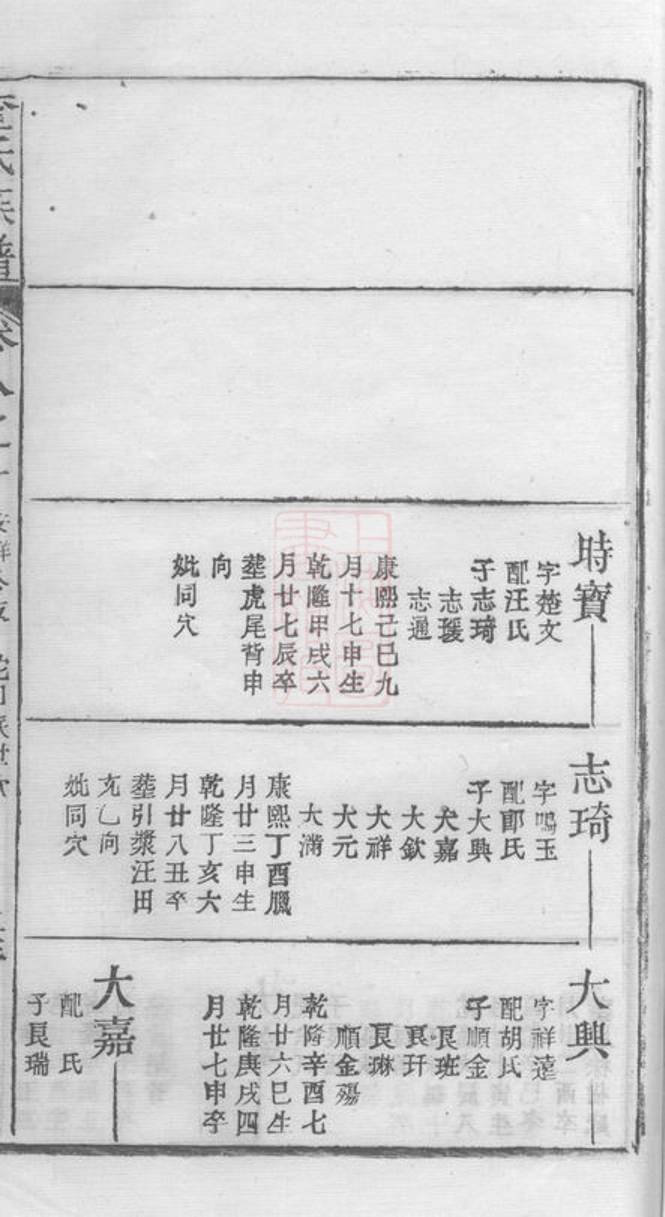 時寶
字楚文
配汪氏
子志琦
志瑗
志通
康熙己巳九
月十七申生
乾隆甲戌六
月廿七辰卒
塟虎尾背申
向
妣同穴
志琦
字鳴玉
配郎氏
子大興
大嘉
大欽
大祥
大元
大滿
康熙丁酉臘
月廿三申生
乾隆丁亥六
月廿八丑卒
塟引漿汪田
亥乙向
妣同穴
大興
字祥遠
配胡氏
子順金
良班
良玕
良琳
順金殤
乾隆辛酉七
月廿六巳生
乾隆庚戌四
月廿七申卒
大嘉
配 氏
子良瑞
氏族譜